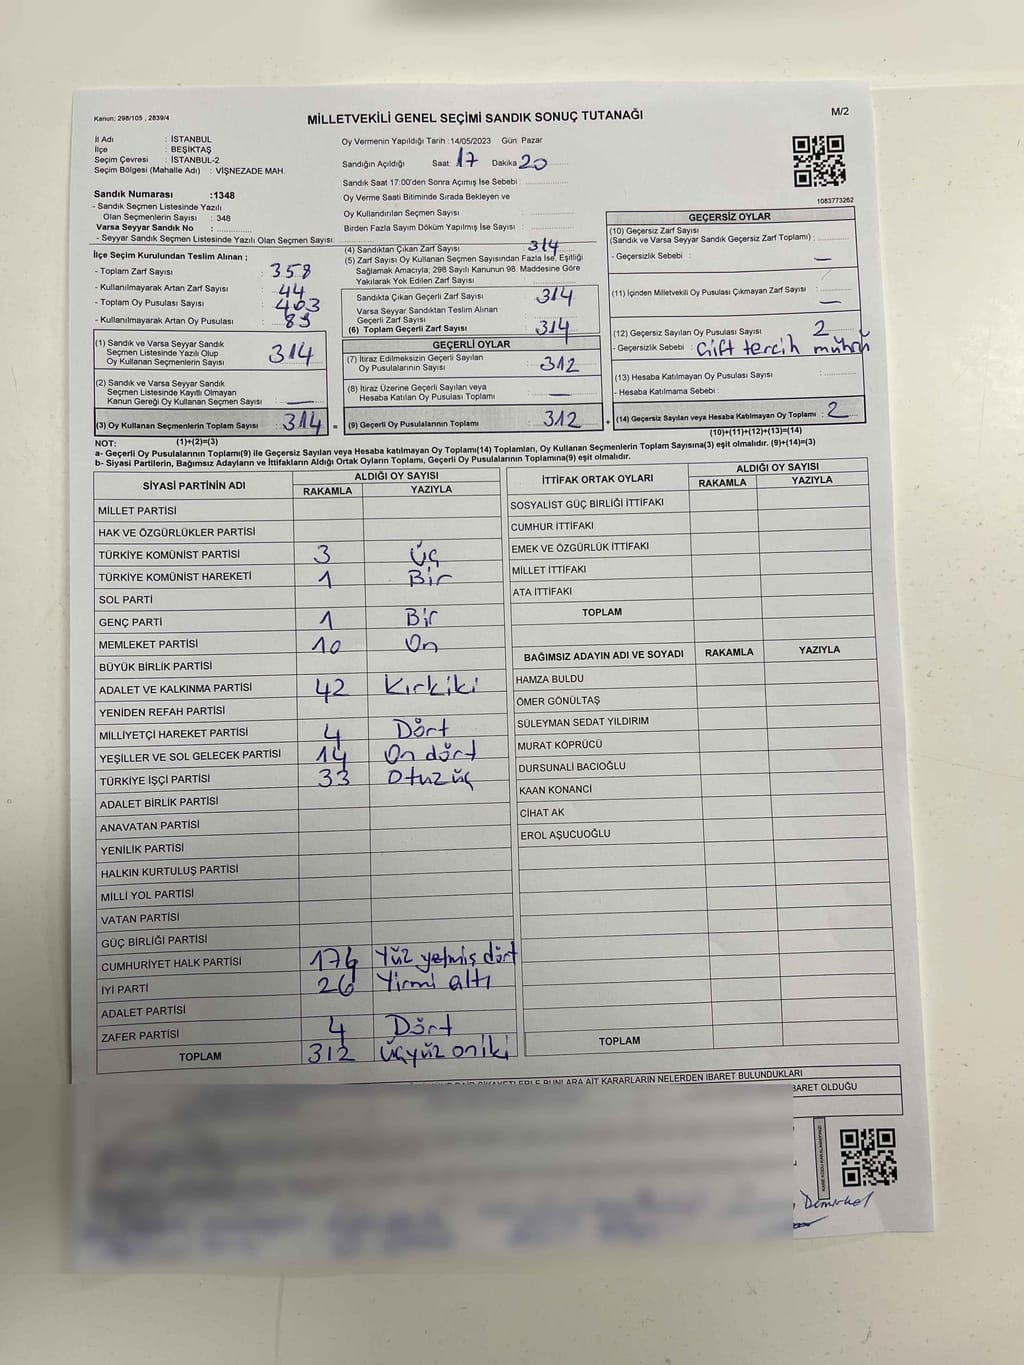 Kanun: 298/105 , 2839/4
MİLLETVEKİLİ GENEL SEÇİMİ SANDIK SONUÇ TUTANAĞI
M/2
İl Adı : İSTANBUL
İlçe : BEŞİKTAŞ
Seçim Çevresi : İSTANBUL-2
Seçim Bölgesi (Mahalle Adı) : VİŞNEZADE MAH.
Sandık Numarası :1348
- Sandık Seçmen Listesinde Yazılı
Olan Seçmenlerin Sayısı : 348
Varsa Seyyar Sandık No :
- Seyyar Sandık Seçmen Listesinde Yazılı Olan Seçmen Sayısı:
Oy Vermenin Yapıldığı Tarih :14/05/2023 Gün: Pazar
Sandığın Açıldığı Saat: 17 Dakika 20
Sandık Saat 17:00'den Sonra Açılmış İse Sebebi :
Oy Verme Saati Bitiminde Sırada Bekleyen ve
Oy Kullandırılan Seçmen Sayısı :
Birden Fazla Sayım Döküm Yapılmış İse Sayısı :
1083773262
İlçe Seçim Kurulundan Teslim Alınan ;
- Toplam Zarf Sayısı : 358
- Kullanılmayarak Artan Zarf Sayısı : 44
- Toplam Oy Pusulası Sayısı : 403
- Kullanılmayarak Artan Oy Pusulası : 89
(1) Sandık ve Varsa Seyyar Sandık
Seçmen Listesinde Yazılı Olup
Oy Kullanan Seçmenlerin Sayısı : 314
(2) Sandık ve Varsa Seyyar Sandık
Seçmen Listesinde Kayıtlı Olmayan
Kanun Gereği Oy Kullanan Seçmen Sayısı : —
(3) Oy Kullanan Seçmenlerin Toplam Sayısı : 314 =
(4) Sandıktan Çıkan Zarf Sayısı : 314
(5) Zarf Sayısı Oy Kullanan Seçmen Sayısından Fazla İse, Eşitliği
Sağlamak Amacıyla; 298 Sayılı Kanunun 98. Maddesine Göre
Yakılarak Yok Edilen Zarf Sayısı :
Sandıkta Çıkan Geçerli Zarf Sayısı : 314
Varsa Seyyar Sandıktan Teslim Alınan
Geçerli Zarf Sayısı :
(6) Toplam Geçerli Zarf Sayısı : 314
GEÇERLİ OYLAR
(7) İtiraz Edilmeksizin Geçerli Sayılan
Oy Pusulalarının Sayısı : 312
(8) İtiraz Üzerine Geçerli Sayılan veya
Hesaba Katılan Oy Pusulası Toplamı : —
(9) Geçerli Oy Pusulalarının Toplamı : 312 +
GEÇERSİZ OYLAR
(10) Geçersiz Zarf Sayısı
(Sandık ve Varsa Seyyar Sandık Geçersiz Zarf Toplamı) :
- Geçersizlik Sebebi : —
(11) İçinden Milletvekili Oy Pusulası Çıkmayan Zarf Sayısı : —
(12) Geçersiz Sayılan Oy Pusulası Sayısı : 2
- Geçersizlik Sebebi : Çift tercih mührü
(13) Hesaba Katılmayan Oy Pusulası Sayısı :
- Hesaba Katılmama Sebebi :
(14) Geçersiz Sayılan veya Hesaba Katılmayan Oy Toplamı : 2
NOT: (1)+(2)=(3)
(10)+(11)+(12)+(13)=(14)
a- Geçerli Oy Pusulalarının Toplamı(9) ile Geçersiz Sayılan veya Hesaba katılmayan Oy Toplamı(14) Toplamları, Oy Kullanan Seçmenlerin Toplam Sayısına(3) eşit olmalıdır. (9)+(14)=(3)
b- Siyasi Partilerin, Bağımsız Adayların ve İttifakların Aldığı Ortak Oyların Toplamı, Geçerli Oy Pusulalarının Toplamına(9) eşit olmalıdır.
SİYASİ PARTİNİN ADI ALDIĞI OY SAYISI
RAKAMLA YAZIYLA
MİLLET PARTİSİ
HAK VE ÖZGÜRLÜKLER PARTİSİ
TÜRKİYE KOMÜNİST PARTİSİ 3 Üç
TÜRKİYE KOMÜNİST HAREKETİ 1 Bir
SOL PARTİ
GENÇ PARTİ 1 Bir
MEMLEKET PARTİSİ 10 On
BÜYÜK BİRLİK PARTİSİ
ADALET VE KALKINMA PARTİSİ 42 Kırkiki
YENİDEN REFAH PARTİSİ
MİLLİYETÇİ HAREKET PARTİSİ 4 Dört
YEŞİLLER VE SOL GELECEK PARTİSİ 14 On dört
TÜRKİYE İŞÇİ PARTİSİ 33 Otuz üç
ADALET BİRLİK PARTİSİ
ANAVATAN PARTİSİ
YENİLİK PARTİSİ
HALKIN KURTULUŞ PARTİSİ
MİLLİ YOL PARTİSİ
VATAN PARTİSİ
GÜÇ BİRLİĞİ PARTİSİ
CUMHURİYET HALK PARTİSİ 174 Yüz yetmiş dört
İYİ PARTİ 26 Yirmi altı
ADALET PARTİSİ
ZAFER PARTİSİ 4 Dört
TOPLAM 312 Üçyüz oniki
İTTİFAK ORTAK OYLARI ALDIĞI OY SAYISI
RAKAMLA YAZIYLA
SOSYALİST GÜÇ BİRLİĞİ İTTİFAKI
CUMHUR İTTİFAKI
EMEK VE ÖZGÜRLÜK İTTİFAKI
MİLLET İTTİFAKI
ATA İTTİFAKI
TOPLAM
BAĞIMSIZ ADAYIN ADI VE SOYADI RAKAMLA YAZIYLA
HAMZA BULDU
ÖMER GÖNÜLTAŞ
SÜLEYMAN SEDAT YILDIRIM
MURAT KÖPRÜCÜ
DURSUNALİ BACIOĞLU
KAAN KONANCİ
CİHAT AK
EROL AŞUCUOĞLU
TOPLAM
BUNLARA AİT KARARLARIN NELERDEN İBARET BULUNDUKLARI
İBARET OLDUĞU
Demirkol